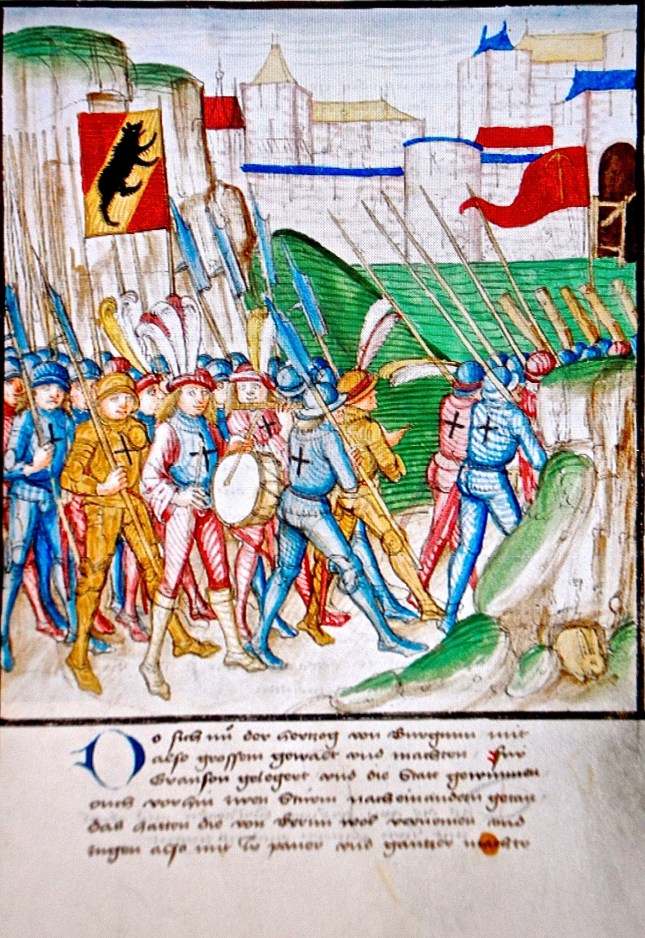 Do sich nu der hertzog von Burgunn mit
also grossem gewalt und machten fur
Granson gelegert und die Statt gewunnen
ouch vorhin iren Sturm nacheinandern getan
das hatten die von Bern wol vernomen und
zugen also mit ir paner und gantzer machte